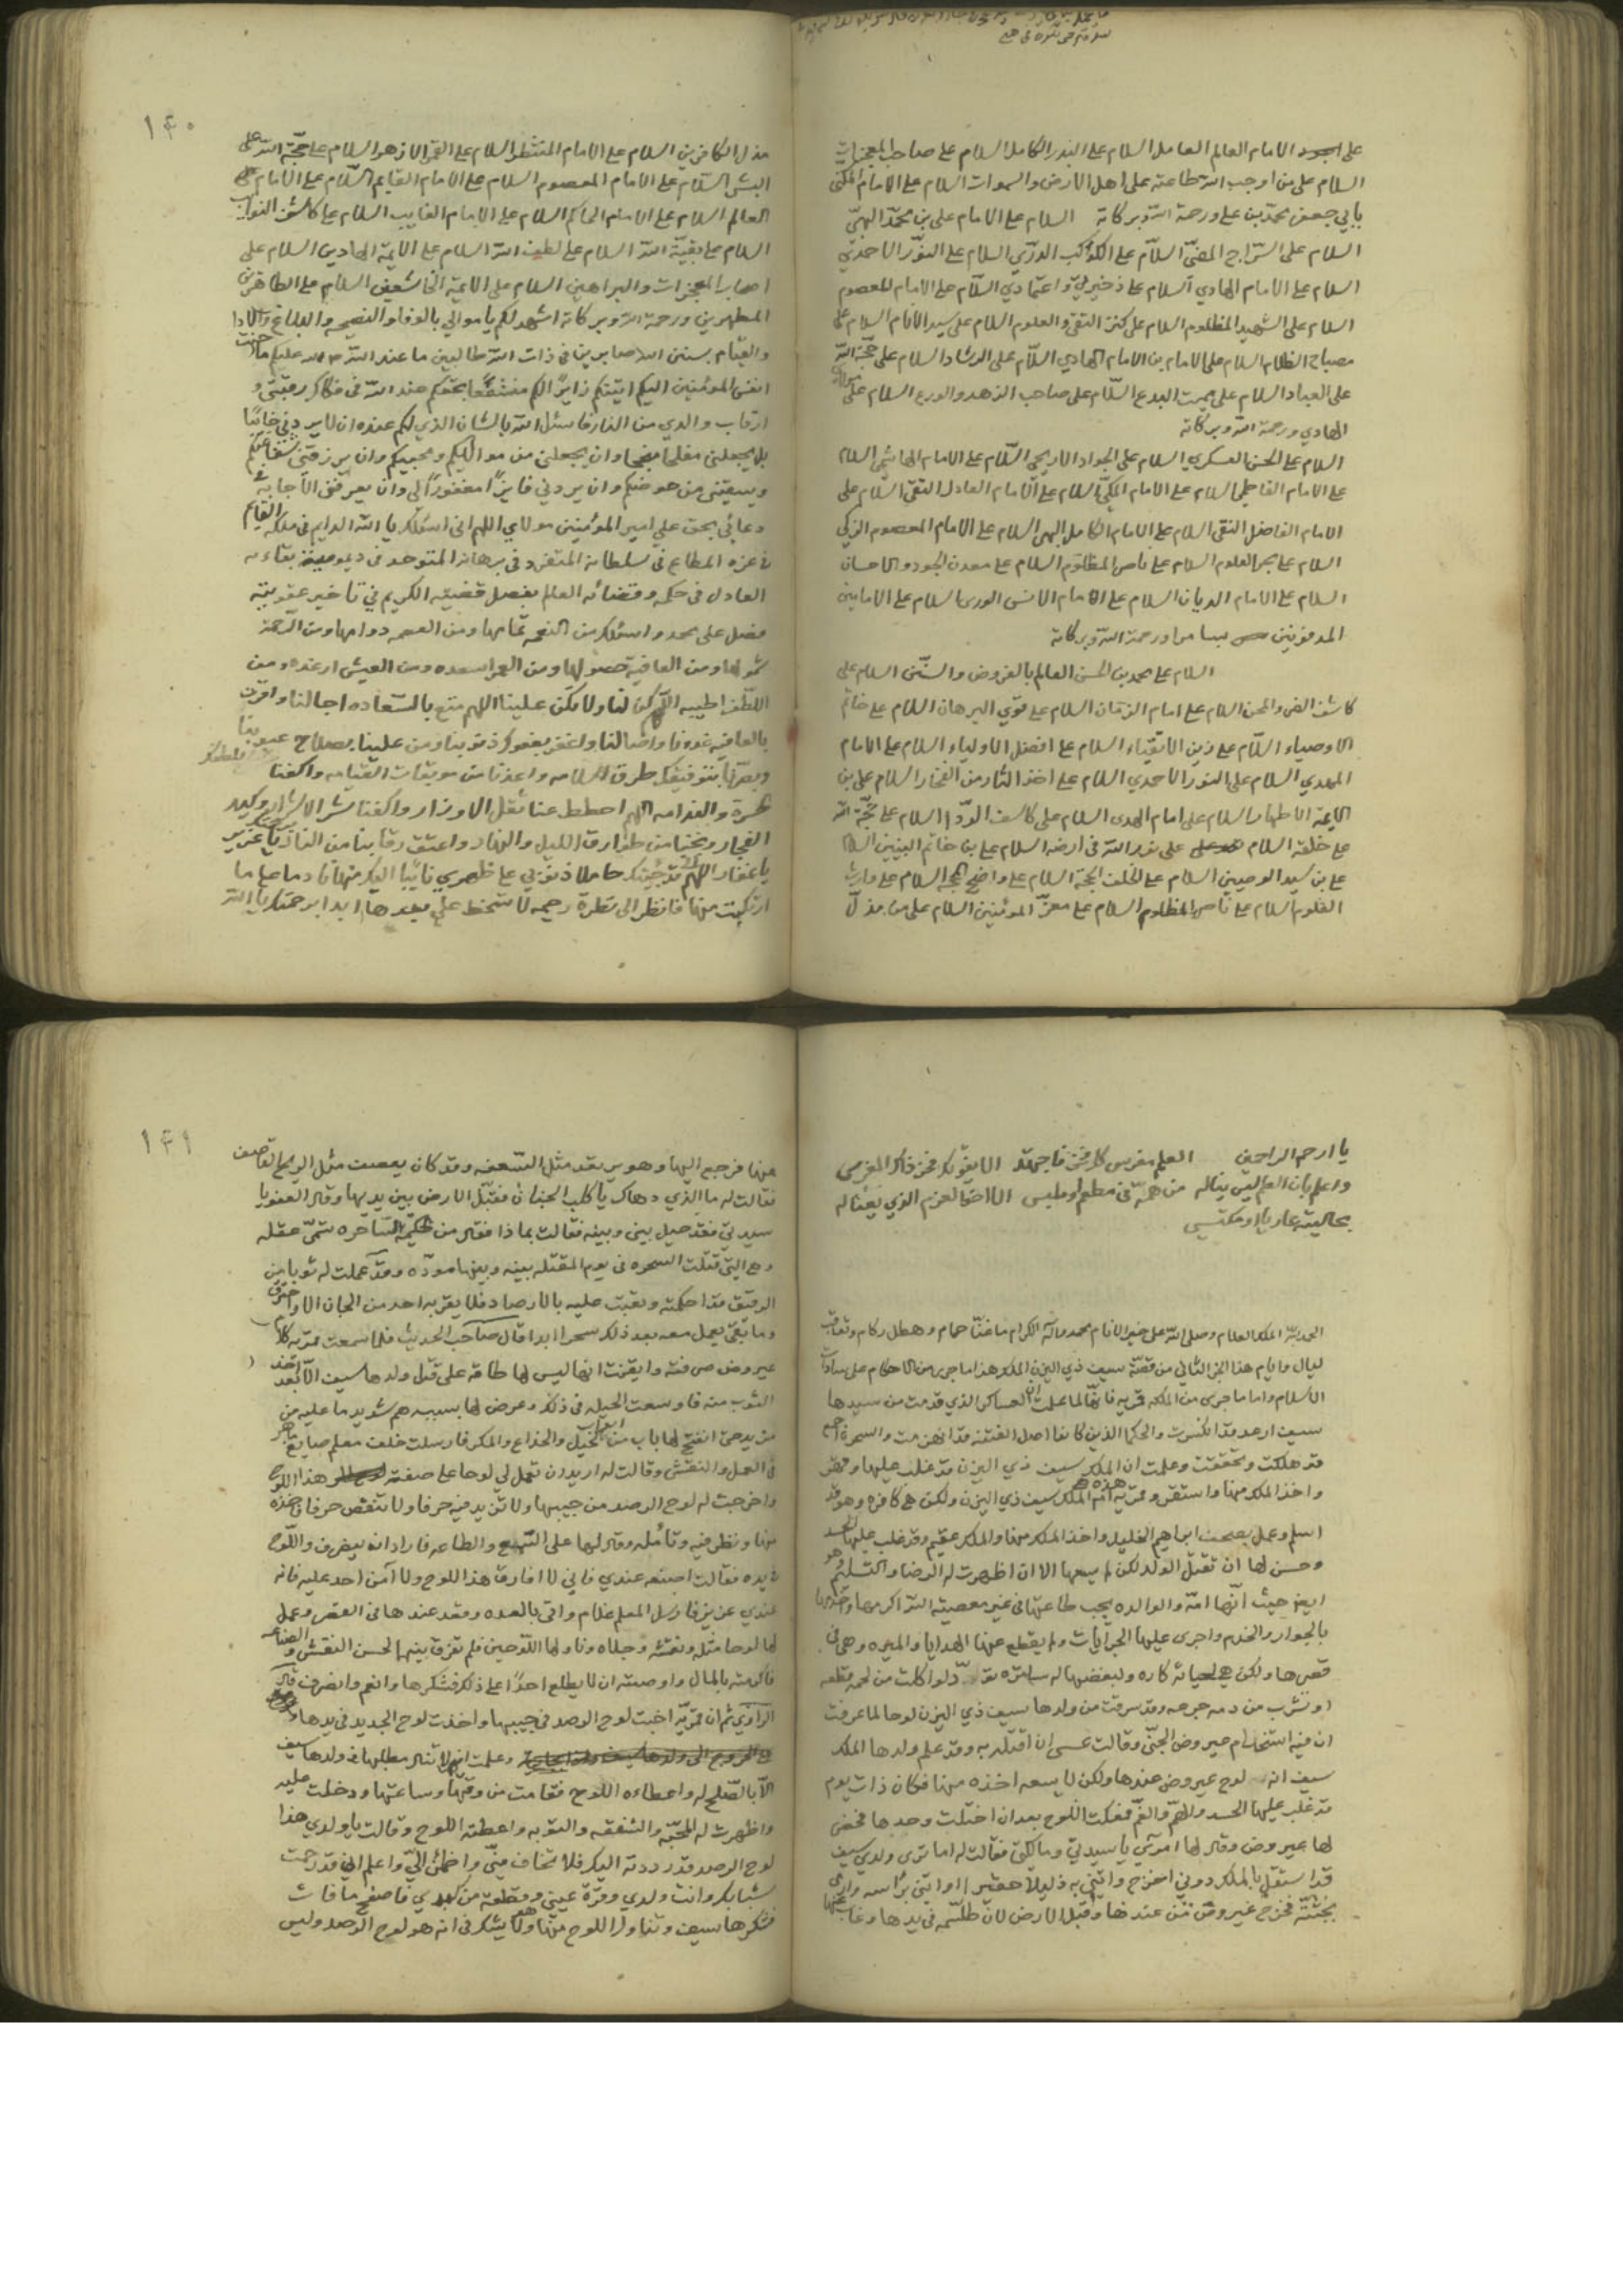 على الامام العالم العامل السلام على البدر الكامل السلام على صاحب المعجزات
السلام على من اوجب الله طاعته على اهل الارض والسموات السلام على الامام المكنى
بابي جعفر محمد بن علي ورحمة الله وبركاته السلام على الامام علي بن محمد
السلام على السراج المضيّ السلام على الكوكب الدرّي السلام على النور الاحمدي
السلام على الامام الهادي السلام على ذخيرتي واعتمادي السلام على الامام المعصوم
السلام على الشهيد المظلوم السلام على كنز التقى والعلوم السلام على سيد الانام السلام على
مصباح الظلام السلام على الامام بن الامام الهادي السلام على الرشاد السلام على حجّة الله
على العباد السلام على مميت البدع السلام على صاحب الزهد والورع السلام على
الهادي ورحمة الله وبركاته
السلام على الحسن العسكري السلام على الجواد الاريحي السلام على الامام الهاشمي السلام
على الامام الفاطمي السلام على الامام المكيّ السلام على الامام العادل التقي السلام على
الامام الفاضل النقي السلام على الامام الكامل البهي السلام على الامام المعصوم الزكي
السلام على بحر العلوم السلام على ناصر المظلوم السلام على معدن الجود والاحسان
السلام على الامام الديان السلام على الامام الانس الورى السلام على الامامين
المدفونين بسامرا ورحمة الله وبركاته
السلام على محمد بن الحسن العالم بالفروض والسنن السلام على
كاشف الضر والمحن السلام على امام الزمان السلام على قوي البرهان السلام على خاتم
الاوصياء السلام على زين الاتقياء السلام على افضل الاولياء السلام على الامام
المهدي السلام على النور الاحمدي السلام على اخذ الثار من الفجار السلام على بن
الايمة الاطهار السلام على امام الهدى السلام على كاشف الردا السلام على حجّة الله
على خلقه السلام على نور الله في ارضه السلام على بن خاتم النبيين السلام
على بن سيد الوصيين السلام على الخلف الحجة السلام على واضح المحجة السلام على وارث
العلوم السلام على ناصر المظلوم السلام على معزّ المومنين السلام على من مذلّ
١٤٠
مذل الكافرين السلام على الامام المنتظر السلام على القمر الازهر السلام على حجّة الله على
البشر السلام على الامام المعصوم السلام على الامام القايم السلام على الامام
العالم السلام على الامام الحاكم السلام على الامام الغايب السلام على كاشف النوايب
السلام على بقيّة الله السلام على لطيف الله السلام على الايمة الهادين السلام على
اصحاب المعجزات والبراهين السلام على الايمة الخاشعين السلام على الطاهرين
المطهرين ورحمة الله وبركاته اشهد لكم يا موالي بالوفا والنصيحه والبلاغ والادا
والقيام بسنن الله صابرين في ذات الله طالبين ما عند الله عليكم ما حنت
انفس المومنين اليكم اتيتكم زايراً لكم متشفعاً بحقكم عند الله في فكاك رقبتي و
ارقاب والدي من النار فاسئل الله بالشان الذي لكم عنده ان لا يردني خايبا
بل يجعلني مفلحا منجحا وان يجعلني من مواليكم ومحبيكم وان يرزقني شفاعتكم
ويسقيني من حوضكم وان يردني فايزاً مغفوراً لي وان يعرفني الاجابة في
دعائي بحق علي امير المومنين مولاي اللهم اني اسئلك يا الله الدايم في ملكه القايم
في عزه المطاع في سلطانه المتفرد في برهانه المتوحد في ديموميته بقاءه
العادل في حكمه وقضائه العالم بفصل قضيته الكريم في تاخير عقوبته
فصل على محمد واسئلك من النعمه تمامها ومن العصمه دوامها ومن الرحمة
شمولها ومن العافية حصولها ومن العمر اسعده ومن العيش ارغده ومن
اللطف اطيبه اللهم كن لنا ولا تكن علينا اللهم متع بالسعاده اجالنا واقرن
بالعافيه غدونا واصالنا واغفر بعفوك ذنوبنا ومن علينا بصلاح عيوبنا
وبصّرنا بتوفيقك طرق السلامه واعذنا من موبقات القيامه واكفنا
حسرة والندامه اللهم احطط عنا ثقل الاوزار واكفنا شر الاشرار وكيد
الفجار ونجنا من طوارق الليل والنهار واعتق رقابنا من النار يا عزيز
يا غفار اللهم قد جئتك حاملا ذنوبي على ظهري تايبًا اليك منها نادما على ما
ارتكبت منها فانظر الي نظرة رحيمه لا تسخط علي بعدها ابدا برحمتك يا الله
يا ارحم الراحمين العلم مغرس كل فخر فاجهد الا يفوتك فخر ذاك المغرس
واعلم بان العلم ليس يناله من همّه في مطعم او ملبس الا اخو العزم الذي يعنا له
بحالتيه عاريا او مكتسي
الحمد لله الملك العلام وصلى الله على خير الانام محمد واله الكرام ما غنّا حمام وهطل ركام وتعاقب
ليال وايام هذا الجزء الثاني من قصّة سيف ذي اليزن الملك هذا ما جرى من الاحكام على سادات
الاسلام واما ما جرى من الملكه قمريه فانها لما علمت ان العساكر الذي قدمت من سيدها
سيف ارعد قد انكسرت والحكما الذين كانوا اصل الفتنه قد انهزمت والسحرة اجمع
قد هلكت وتحققت وعلمت ان الملك سيف ذي اليزن قد غلب عليها وقهر
واخذ الملك منها واستقر وقمريه هذه هي ام الملك سيف ذي اليزن ولكن هي كافره وهو قد
اسلم وعمل بصحف ابراهيم الخليل واخذ الملك منها والملك عقيم وقد غلب عليها الحسد
وحسن لها ان تقتل الولد لكن لم يسعها الا ان اظهرت له الرضا والتسليم
ايضا حيث انّها امّه والوالده يجب طاعتها في غير معصية الله اكرمها واخدمها
بالجوار والخدم واجرى عليها الجرايات ولم يقطع عنها الهدايا والميره وهي في
قصرها ولكن هي لحياته كاره ولبغضها له سايره تودّ لو اكلت من لحمه قطعه
او تشرب من دمه جرعه وقد سرقت من ولدها سيف ذي اليزن لوحا لما عرفت
ان فيه استخدام عيروض الجنّي وقالت عسى ان اقتله به وقد علم ولدها الملك
سيف انه لوح عيروض عندها ولكن لا يسعه اخذه منها فكان ذات يوم
قد غلب عليها الحسد والهمّ والغمّ ففكت اللوح بعد ان اختلت وحدها فحضر
لها عيروض وقال لها امري يا سيدتي ومالكتي فقالت له اما ترى ولدي سيف
قد استقل بالملك دوني اخرج واتني به ذليلا حقيرا او اتني براسه وارمي
بجثته فخرج عيروض من عندها وقبل الارض لان طلسمه في يدها وغاب
١٤١
عنها فرجع اليها وهو يرتعد مثل السعفه وقد كان يعصف مثل الريح العاصف
فقالت له ما الذي دهاك يا كلب الجنان فقبّل الارض بين يديها وقال العفو يا
سيدتي فقد حيل بيني وبينه فقالت بماذا فقال من حكيمة الساحره تسمّى عقله
وهي التي قتلت السحره في يوم المقتله بينه وبينها مودّه وقد عملت له ثوبا من
الرقيق قد احكمته وبقيت عليه بالارصاد فلا يقربه احد من الجان الا واحترق
وما بقي يعمل معه بعد ذلك سحرا ابدا قال صاحب الحديث فلما سمعت قمريه كلام
عيروض عرفته وايقنت انها ليس لها طاقه على قتل ولدها سيف الا بعد اخذ
الثوب منه فاوسعت الحيله في ذلك وعرض لها بسببه هم شديد ما عليه من
مزيد حتى انفتح لها باب من ابواب الحيل والخداع والمكر فارسلت خلف معلم صايغ ماهر
في العمل والنقش وقالت له اريد ان تعمل لي لوحا على صفة هذا اللوح
واخرجت له لوح الرصد من جيبها ولا تزيد فيه حرفا ولا تنقص حرفا فاخذه
منها ونظر فيه وتامله وقال لها على السمع والطاعه فاراد ان ينصرف واللوح
في يده فقالت اصنعه عندي فاني لا افارق هذا اللوح ولا آمن احد عليه فانه
عندي عزيز فارسل المعلم غلام واتى بالعده وقعد عندها في القصر وعمل
لها لوحا مثله ونقشه وجلاه وناولها اللوحين فلم تفرق بينهم لحسن النقش والصناعه
فاكرمته بالمال واوصته ان لا يطلع احدًا على ذلك فشكرها وانعم وانصرف قال
الراوي ثم ان قمريّه اخبت لوح الرصد في جيبها واخذت لوح الجديد في يدها
وعلمت انها لا تنال مطلبها في ولدها سيف
الا بالصلح له واعطاءه اللوح فقامت من وقتها وساعتها ودخلت عليه
واظهرت له المحبّه والشفقه والتوبه واعطته اللوح وقالت يا ولدي هذا
لوح الرصد قد رددته اليك فلا تخاف منّي واطمئن اليّ واعلم اني قد رحمت
شبابك وانت ولدي وقرّة عيني وقطعة من كبدي فاصفح ما فات
فشكرها سيف وتناول اللوح منها وهو لا يشك في انه هو لوح الرصد وليس